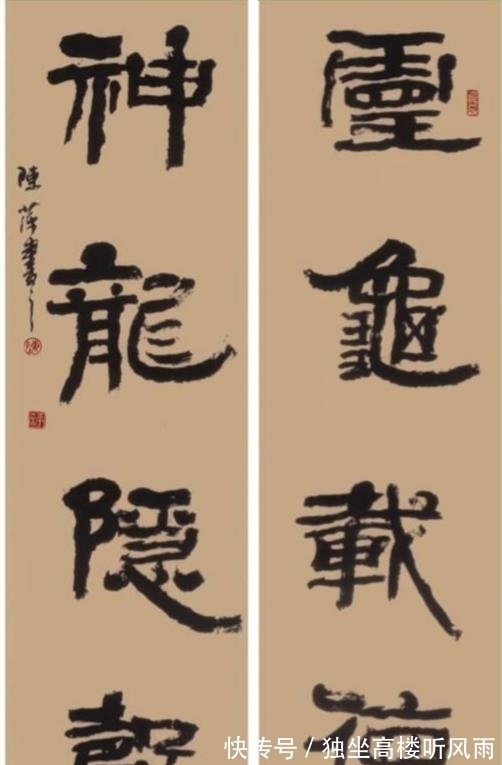 靈龜載荷
神龍隱
陳
書
快传号 / 独坐高楼听风雨